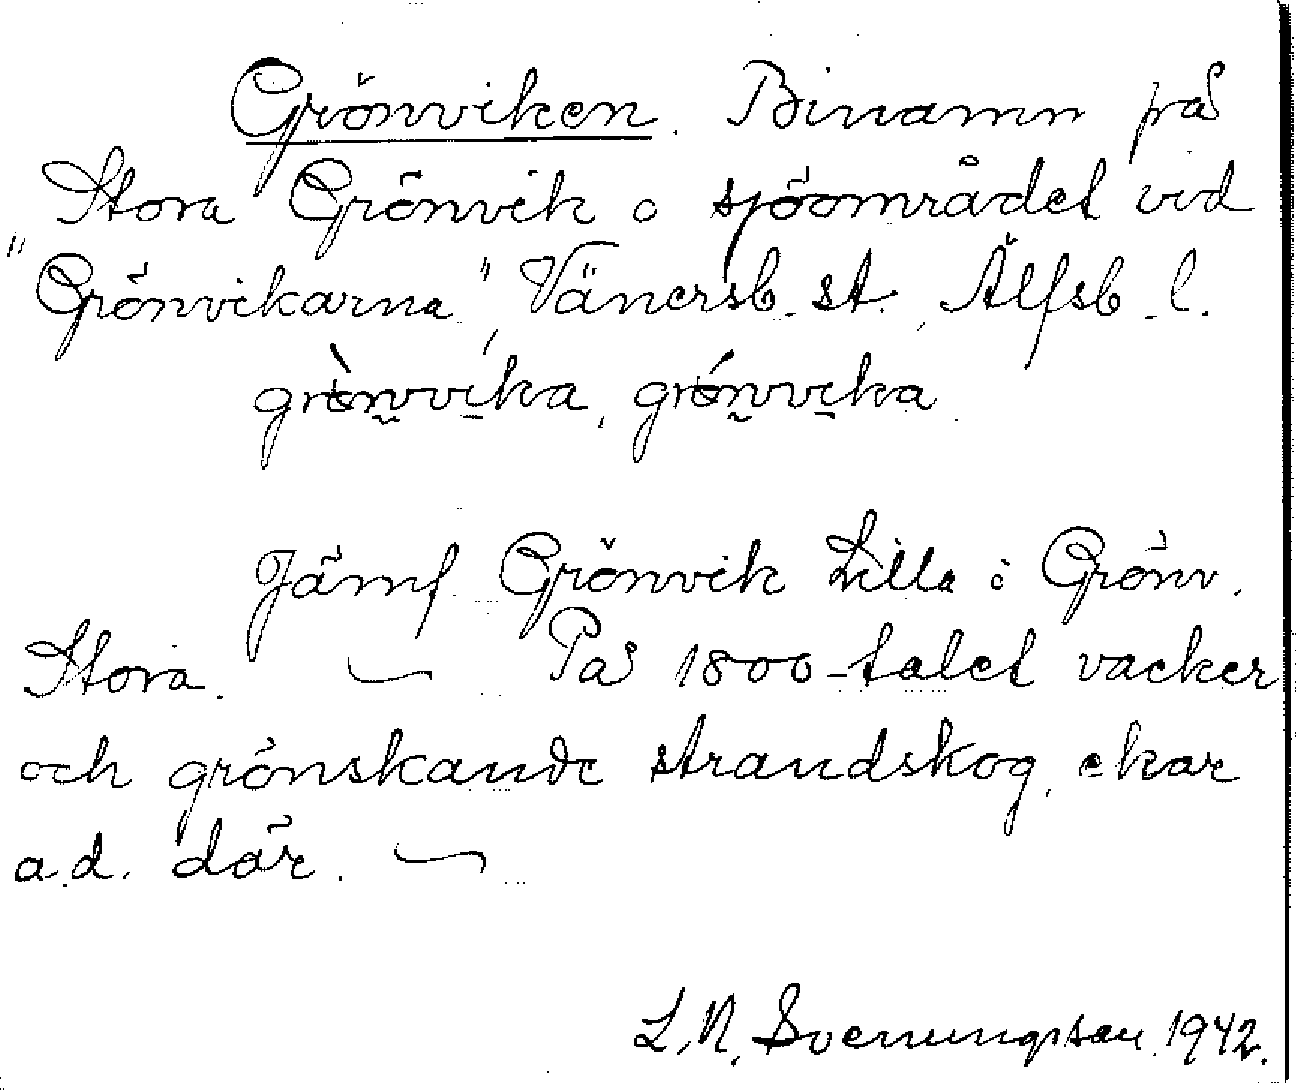 Grönviken. Binamn på
Stora Grönvik o sjöområdet vid
"Grönvikarna", Vänersb. st., Älfsb. l.
grö̀nvika, grö́nvika.
Jämf Grönvik Lilla o Grönv.
Stora. — På 1800-talet vacker
och grönskande strandskog, ekar
a.d. där. —
L.N. Svenungsson 1942.